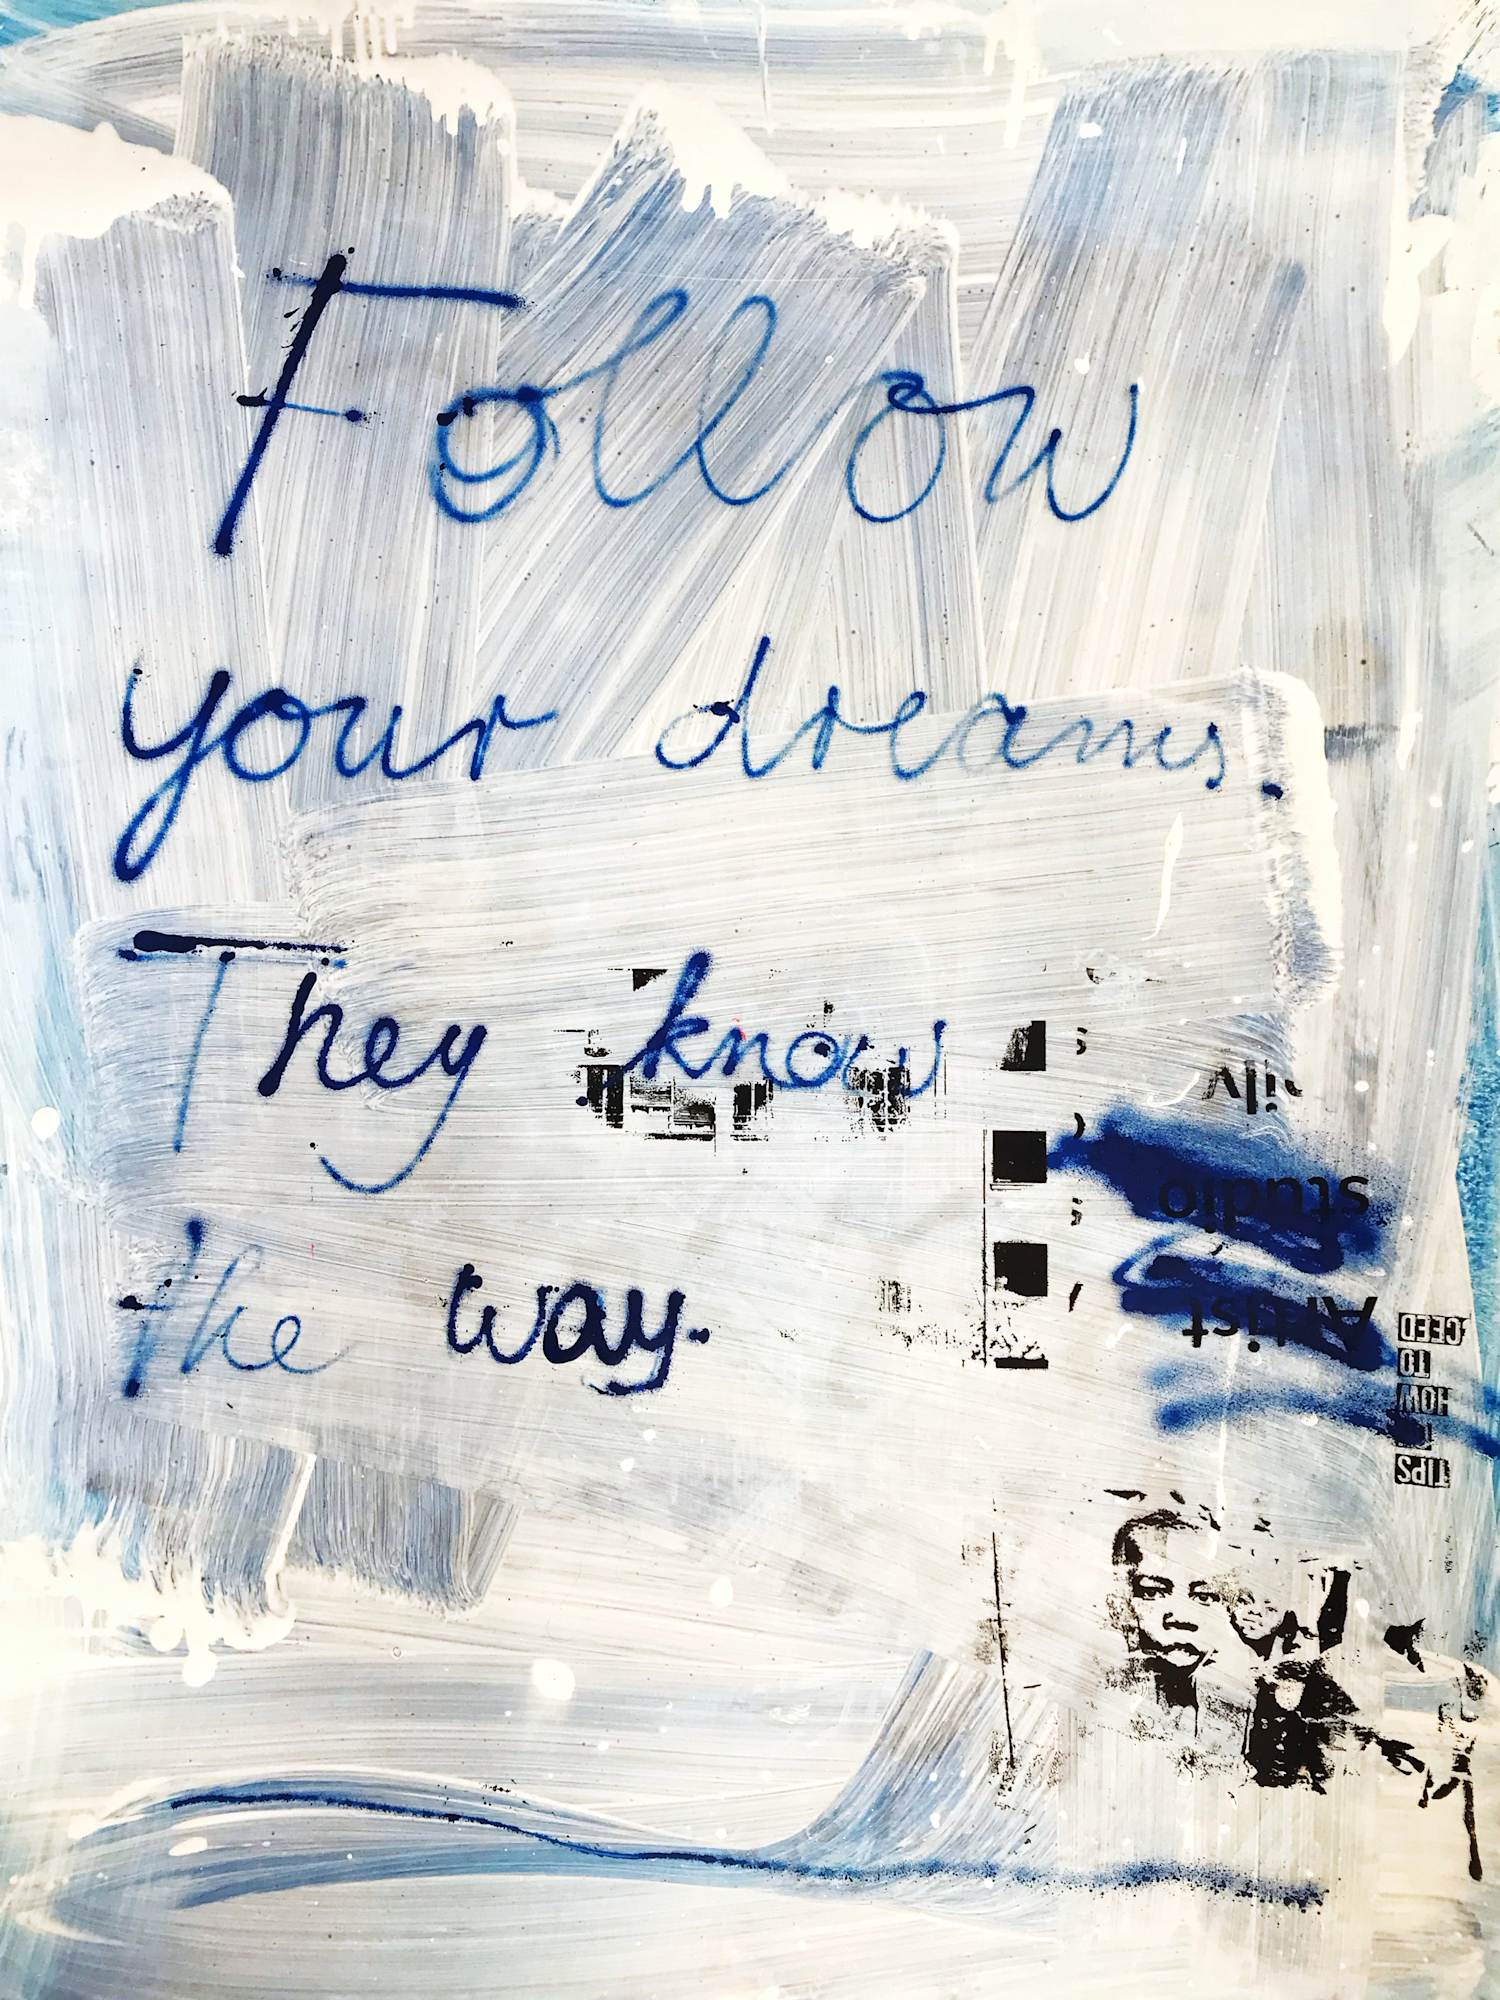 Follow
your dreams.
They know
the way.
studio
Artist
TIPS
HOW
TO